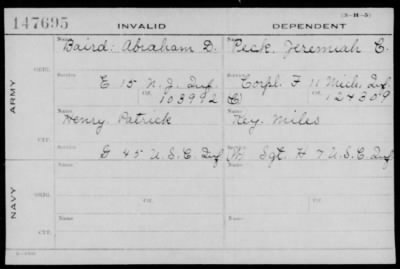 147695 INVALID DEPENDENT (3-H-5)
Name Name
Baird: Abraham D. Peck. Jeremiah C.
ORIG.
Service Service
E 15 N.J. Inf. Corpl. F 11 Mich. Inf
ARMY
Ctf. 103992 C) Ctf. 124309
Name Name
Henry. Patrick Key. Miles
CTF.
Service Service
G 45 U.S.C. Inf (W) Sgt. H 7 U.S.C. Inf
NAVY
ORIG.
Name Name
CTF.
Name Name